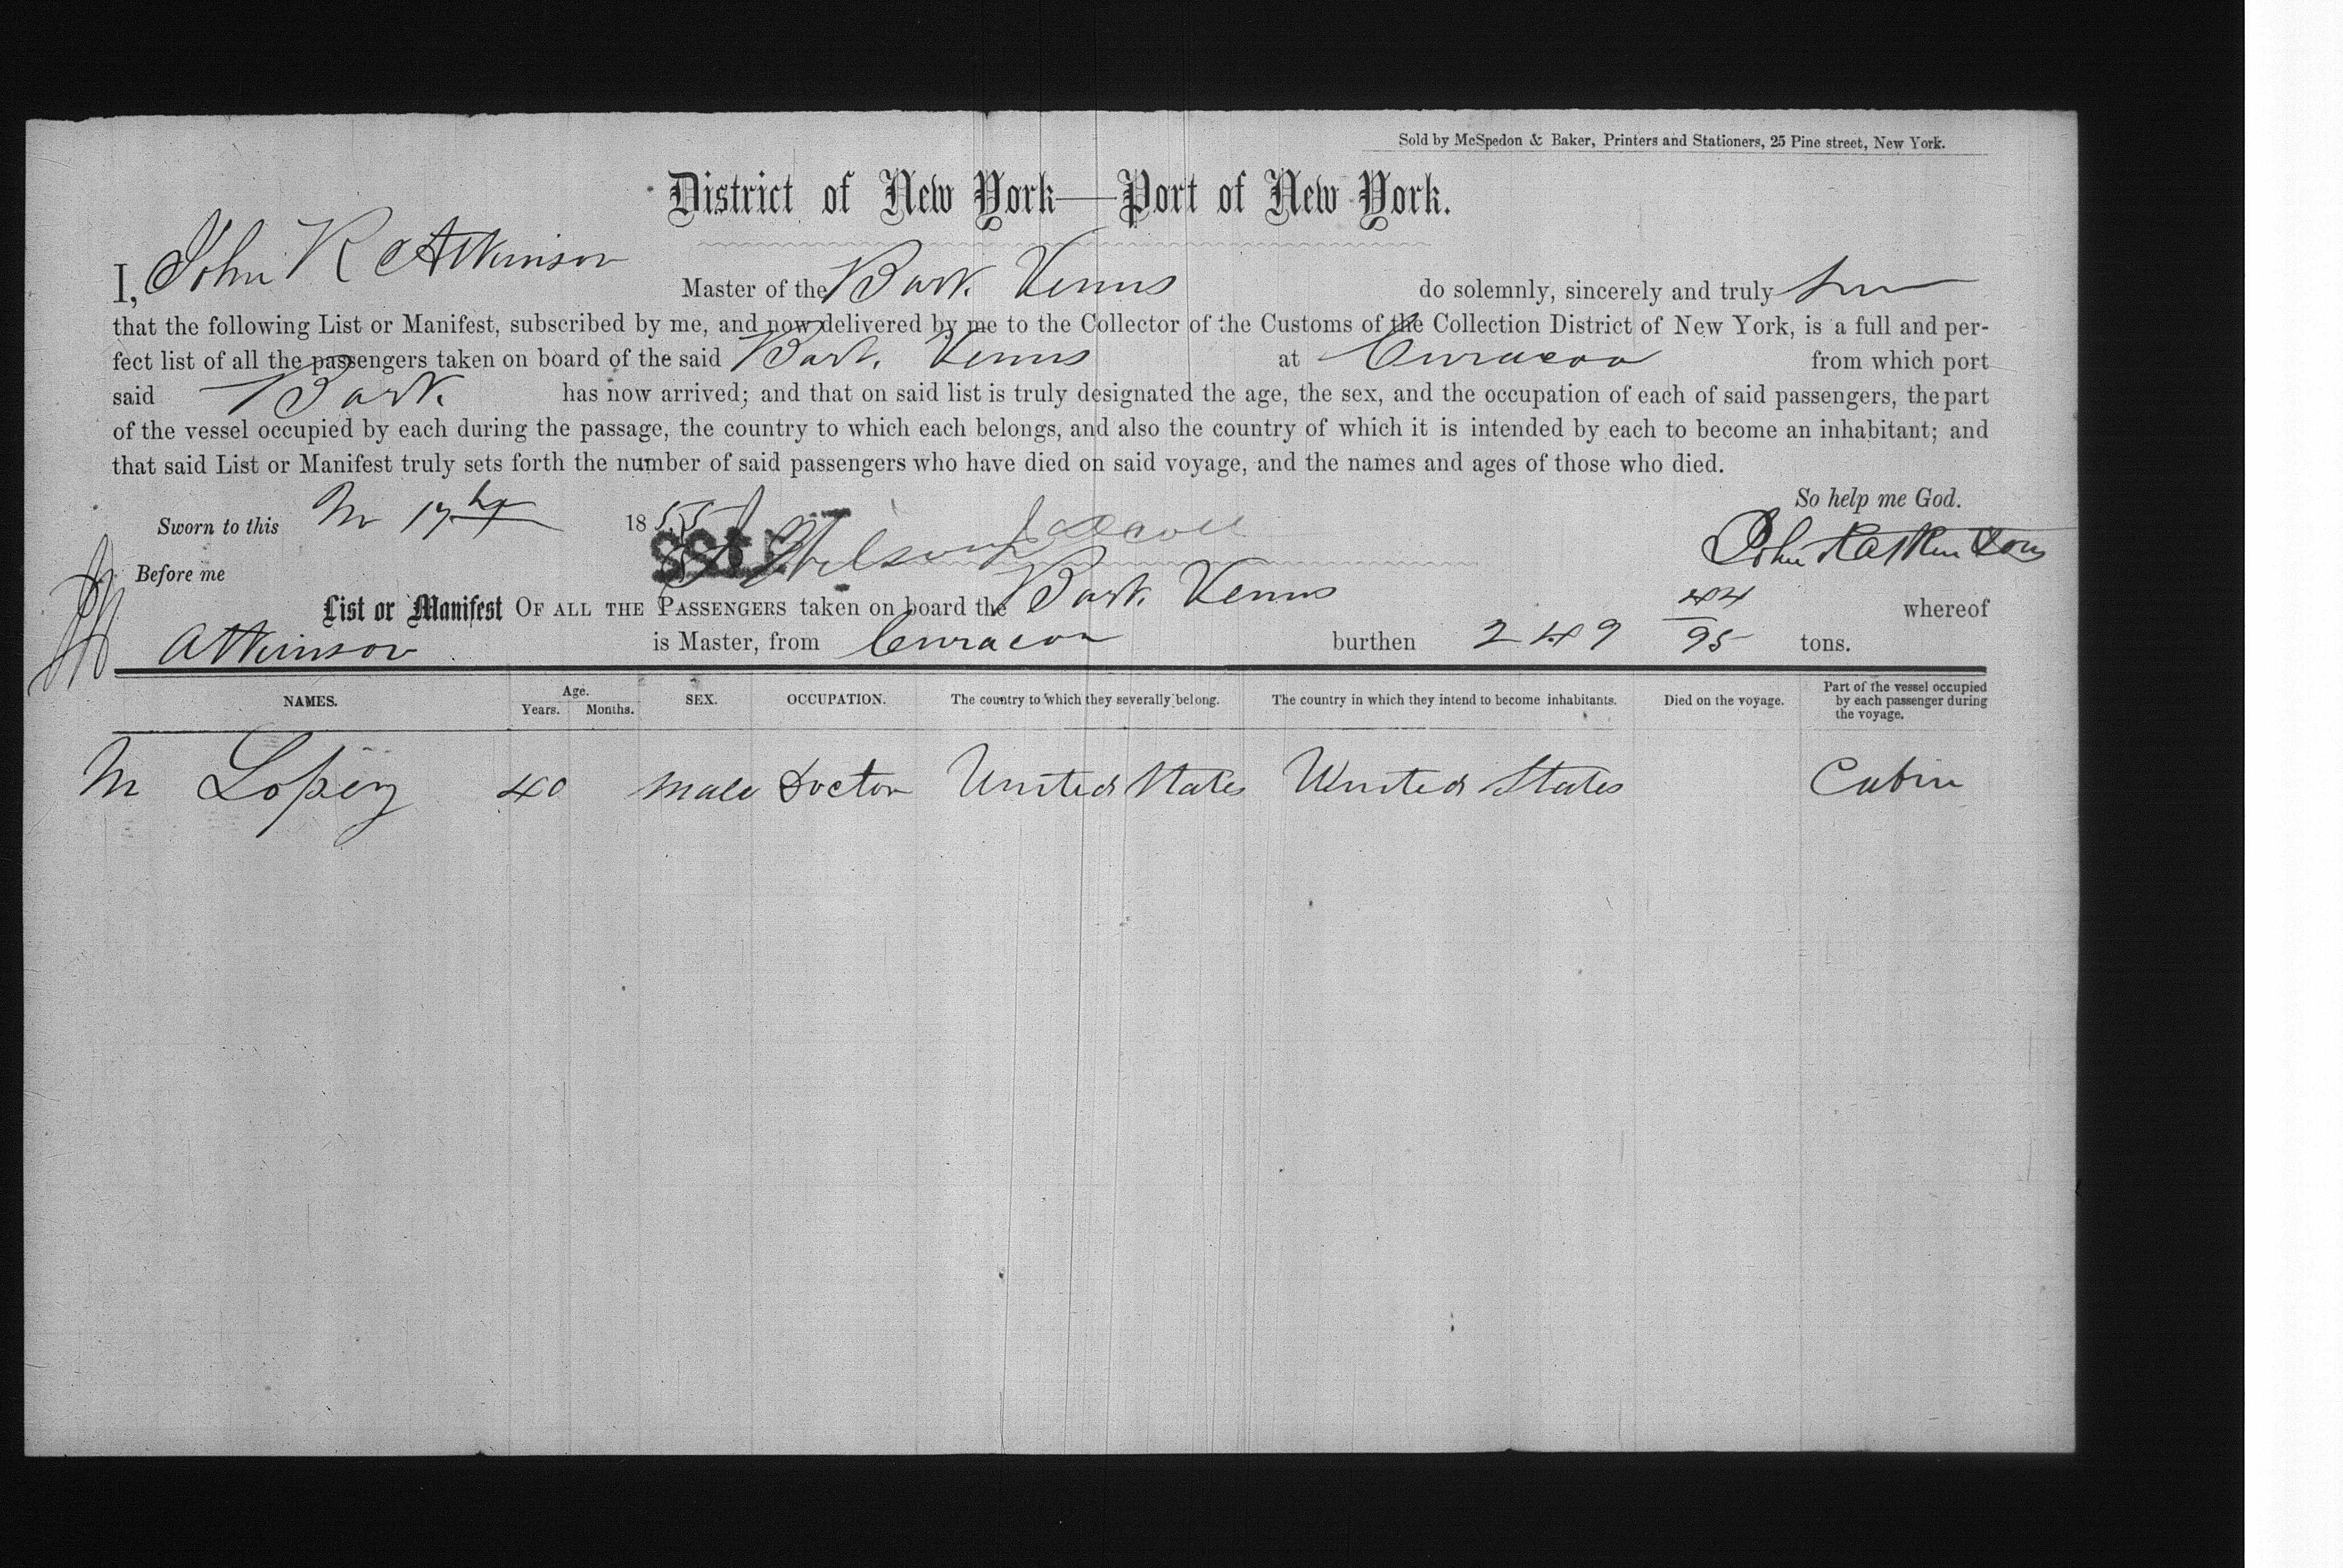 Sold by McSpedon & Baker, Printers and Stationers, 25 Pine street, New York.
District of New York—Port of New York.
I, John R Atkinson Master of the Bark Venus do solemnly, sincerely and truly
that the following List or Manifest, subscribed by me, and now delivered by me to the Collector of the Customs of the Collection District of New York, is a full and per-
fect list of all the passengers taken on board of the said Bark Venus at Curacoa from which port
said Bark has now arrived; and that on said list is truly designated the age, the sex, and the occupation of each of said passengers, the part
of the vessel occupied by each during the passage, the country to which each belongs, and also the country of which it is intended by each to become an inhabitant; and
that said List or Manifest truly sets forth the number of said passengers who have died on said voyage, and the names and ages of those who died.
So help me God.
Sworn to this 17th 1855
John R Atkinson
Before me
List or Manifest OF ALL THE PASSENGERS taken on board the Bark Venus whereof
Atkinson is Master, from Curacoa burthen 249 44/95 tons.
NAMES. Age. Years. Months. SEX. OCCUPATION. The country to which they severally belong. The country in which they intend to become inhabitants. Died on the voyage. Part of the vessel occupied by each passenger during the voyage.
M Lopez 40 male Doctor United States United States Cabin